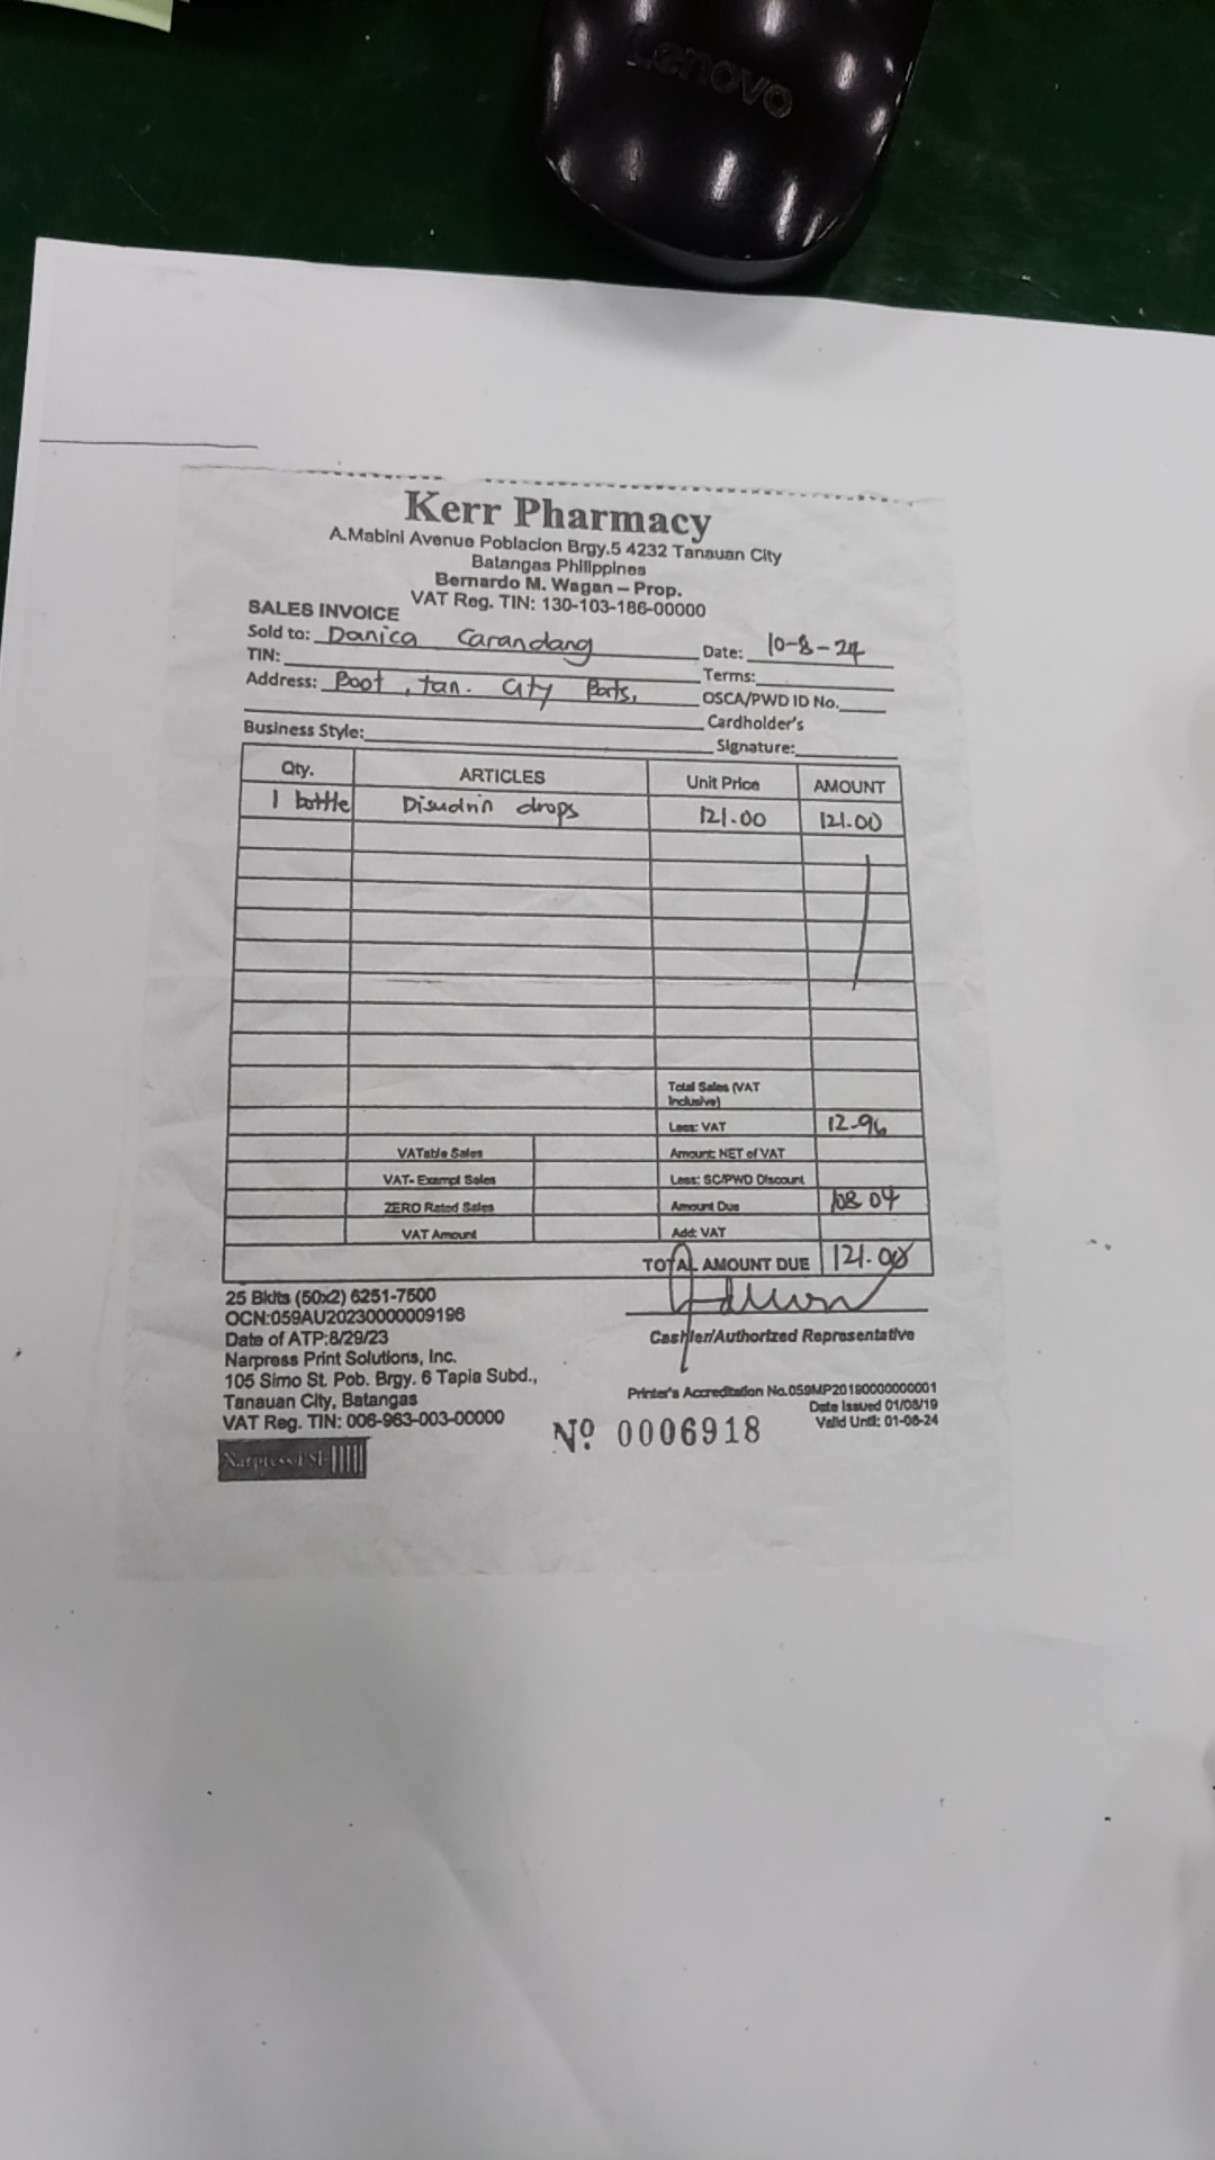 Lenovo
Kerr Pharmacy
A.Mabini Avenue Poblacion Brgy.5 4232 Tanauan City
Batangas Philippines
Bernardo M. Wagan – Prop.
VAT Reg. TIN: 130-103-186-00000
SALES INVOICE
Sold to: Danica Carandang Date: 10-8-24
TIN: Terms:
Address: Boot, tan. City Bats, OSCA/PWD ID No.
Cardholder's
Business Style: Signature:
Qty. ARTICLES Unit Price AMOUNT
1 bottle Disudrin drops 121.00 121.00
Total Sales (VAT
Inclusive)
Less: VAT 12.96
VATable Sales Amount: NET of VAT
VAT- Exempt Sales Less: SC/PWD Discount
ZERO Rated Sales Amount Due 108.04
VAT Amount Add: VAT
TOTAL AMOUNT DUE 121.00
25 Bklts (50x2) 6251-7500
OCN:059AU20230000009196
Date of ATP:8/29/23
Cashier/Authorized Representative
Narpress Print Solutions, Inc.
105 Simo St. Pob. Brgy. 6 Tapia Subd.,
Tanauan City, Batangas
VAT Reg. TIN: 006-963-003-00000
Printer's Accreditation No.059MP20180000000001
Date Issued 01/08/19
Valid Until: 01-08-24
Nº 0006918
Narpress PSI